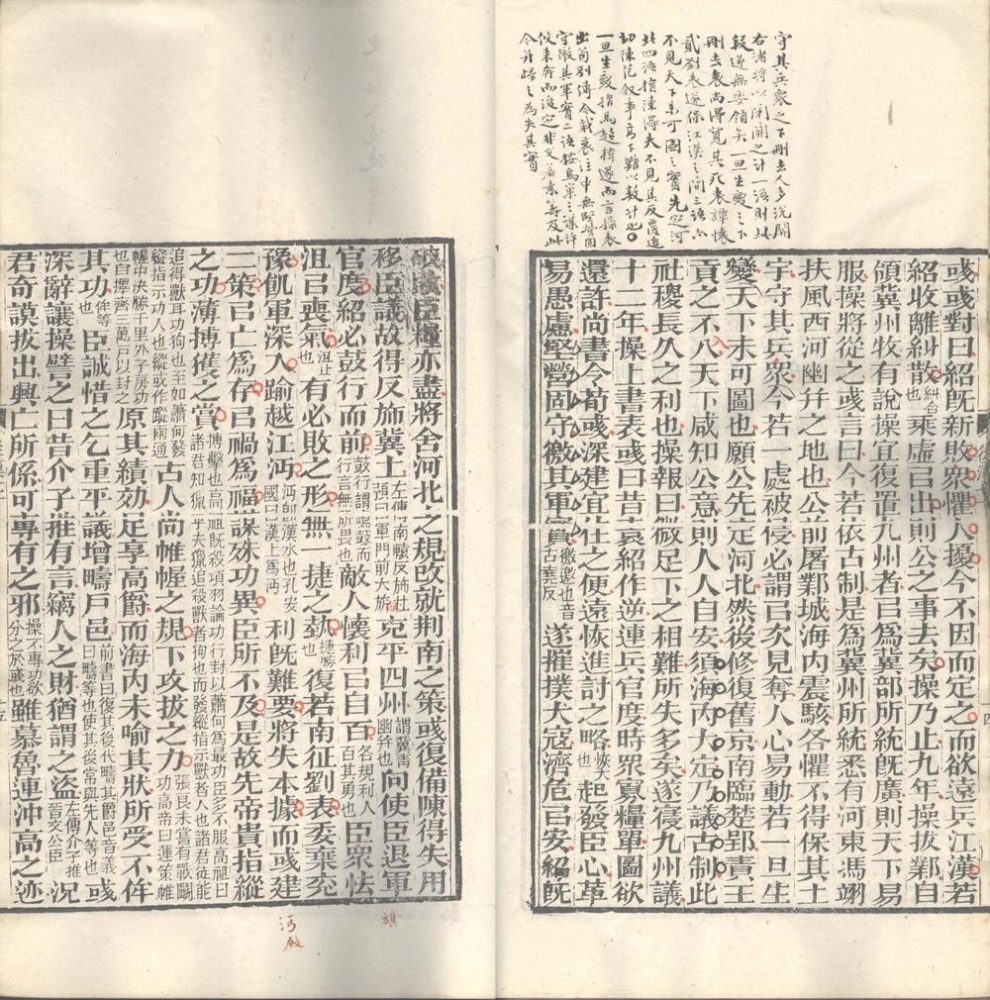 守其兵衆之下刪去人多說關
右諸將以閉關之計一語則此
段遂無要領矣一旦生變之下
刪去表尚得寬其死表譚懷
貳劉表遂保江漢之間三語亦
不見天下未可圖之實先定河
北四語
切陳范叙事高下難以數計也
彧彧對曰紹既新敗衆懼人擾今不因而定之而欲遠兵江漢若
紹收離糾散糾合也乘虛㠯出則公之事去矣操乃止九年操拔鄴自
領冀州牧有說操宜復置九州者㠯爲冀部所統既廣則天下易
服操將從之彧言曰今若依古制是爲冀州所統悉有河東馮翊
扶風西河幽幷之地也公前屠鄴城海内震駭各懼不得保其土
宇守其兵衆今若一處被侵必謂㠯次見奪人心易動若一旦生
變天下未可圖也願公先定河北然後修復舊京南臨楚郢責王
貢之不入天下咸知公意則人人自安須海内大定乃議古制此
社稷長久之利也操報曰微足下之相難所失多矣遂寑九州議
十二年操上書表彧曰昔袁紹作逆連兵官度時衆寡糧單圖欲
還許尚書令荀彧深建宜住之便遠恢進討之略恢大也起發臣心革
易愚慮堅營固守徼其軍實徼邀也音古堯反遂摧撲大寇濟危㠯安紹既
破敗臣糧亦盡將舍河北之規改就荆南之策彧復備陳得失用
移臣議故得反旆冀土左傳南轅反旆杜預曰軍門前大旗克平四州謂冀青幽幷也向使臣退軍
官度紹必鼓行而前鼓行謂鳴鼓而行言無所畏也敵人懷利㠯自百各規利人百其勇也臣衆怯
沮㠯喪氣沮止也有必敗之形無一捷之埶捷勝也復若南征劉表委棄兗
豫飢軍深入踰越江沔沔即漢水也孔安國曰漢上爲沔利既難要將失本據而彧建
二策㠯亡爲存㠯禍爲福謀殊功異臣所不及是故先帝貴指縱
之功薄搏獲之賞搏擊也高祖既殺項羽論功行封以蕭何爲最功臣多不服高祖曰諸君知獵乎夫獵追殺獸者狗也而發縱指示獸者人也諸君徒能
追得獸耳功狗也至如蕭何發縱指示功人也縱或作蹤兩通古人尚帷幄之規下攻拔之力張良未嘗有戰鬭功高帝曰運策帷
幄中決勝千里外子房功也自擇齊三萬戶以封之原其績効足享高爵而海内未喻其狀所受不侔
其功侔等也臣誠惜之乞重平議增疇戶邑前書曰復其後代疇其爵邑音義曰疇等也使其後常與先人等也彧
深辭讓操譬之曰昔介子推有言竊人之財猶謂之盜左傳介子推晉文公臣況
君奇謨拔出興亡所係可專有之邪操不專功欲分之於彧也雖慕魯連沖高之迹
旗
沔